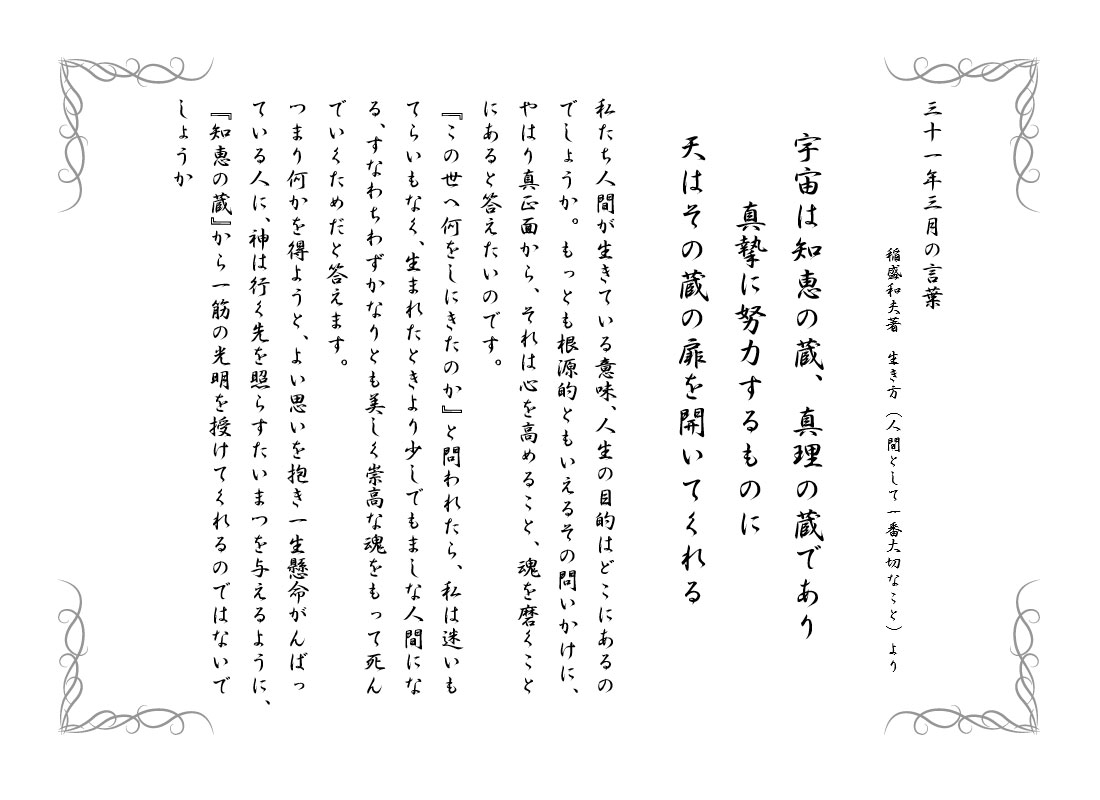 三十一年三月の言葉
稲盛和夫著　生き方（人間として一番大切なこと）より
宇宙は知恵の蔵、真理の蔵であり
真摯に努力するものに
天はその蔵の扉を開いてくれる
私たち人間が生きている意味、人生の目的はどこにあるの
でしょうか。もっとも根源的ともいえるその問いかけに、
やはり真正面から、それは心を高めること、魂を磨くこと
にあると答えたいのです。
『この世へ何をしにきたのか』と問われたら、私は迷いも
てらいもなく、生まれたときより少しでもましな人間にな
る、すなわちわずかなりとも美しく崇高な魂をもって死ん
でいくためだと答えます。
つまり何かを得ようと、よい思いを抱き一生懸命がんばっ
ている人に、神は行く先を照らすたいまつを与えるように、
『知恵の蔵』から一筋の光明を授けてくれるのではないで
しょうか